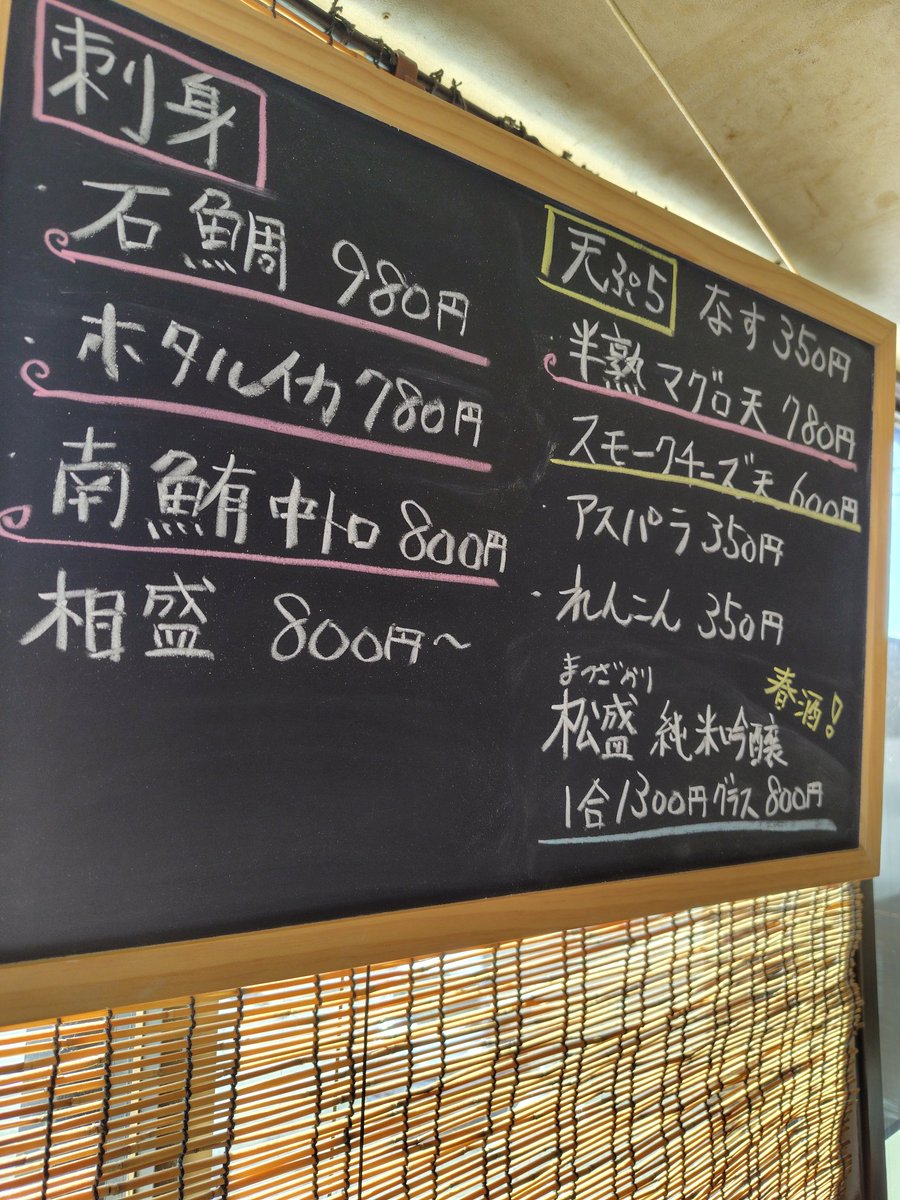 刺身
石鯛 980円
ホタルイカ 780円
南鮪 中トロ 800円
相盛 800円〜
天ぷら
なす 350円
半熟マグロ天 780円
スモークチーズ天 600円
アスパラ 350円
れんこん 350円
春酒!
まつざかり
松盛 純米吟醸
1合1300円グラス800円